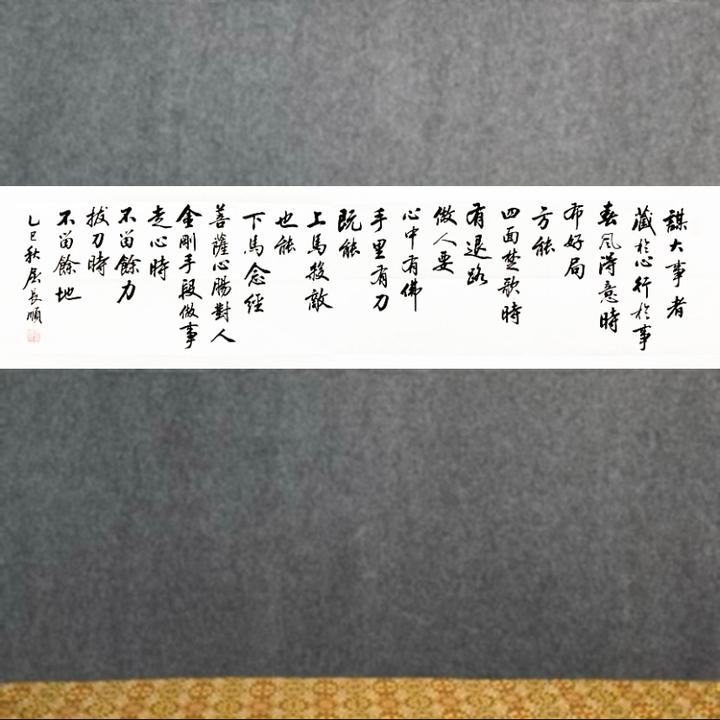 謀大事者
藏於心行於事
春风得意時
布好局
方能
四面楚歌時
有退路
做人要
心中有佛
手里有刀
既能
上馬殺敵
也能
下馬念经
菩薩心腸對人
金剛手段做事
走心時
不留餘力
拔刀時
不留餘地
乙巳秋屈長順